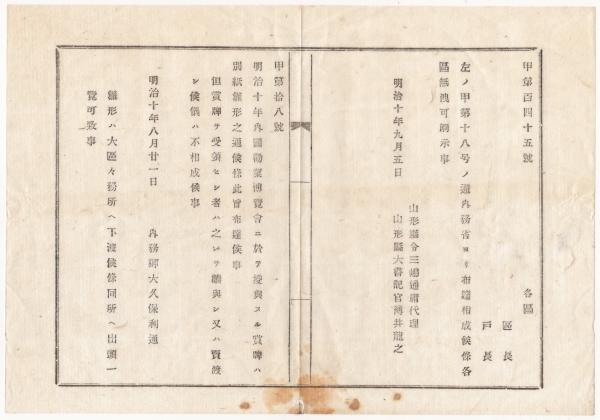 甲第百四十五號
各區
區長
戸長
左ノ甲第十八号ノ通内務省ヨリ布達相成候條各
區無洩可相示事
明治十年九月五日
山形縣令三島通庸代理
山形縣大書記官薄井龍之
甲第拾八號
明治十年内國勸業博覽會ニ於テ授與スル賞牌ハ
別紙雛形之通候條此旨布達候事
但賞牌ヲ受領セシ者ハ之レヲ贈與シ又ハ賣渡
シ候儀ハ不相成候事
明治十年八月廿一日
内務卿大久保利通
雛形ハ大區々務所ヘ下渡候條同所ヘ出頭一
覽可致事